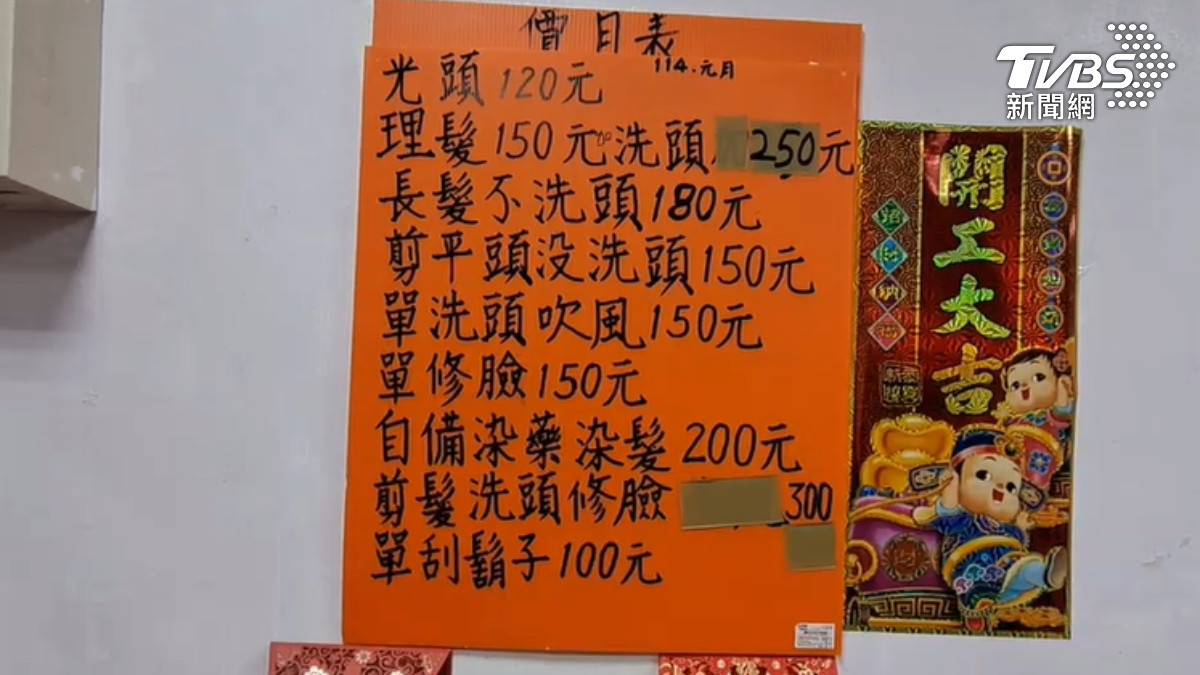 價目表
114.元月
光頭120元
理髮150元加洗頭250元
長髮不洗頭180元
剪平頭没洗頭150元
單洗頭吹風150元
單修臉150元
自備染藥染髮200元
剪髮洗頭修臉300
單刮鬍子100元
開工大吉
招財納福
TVBS
新聞網